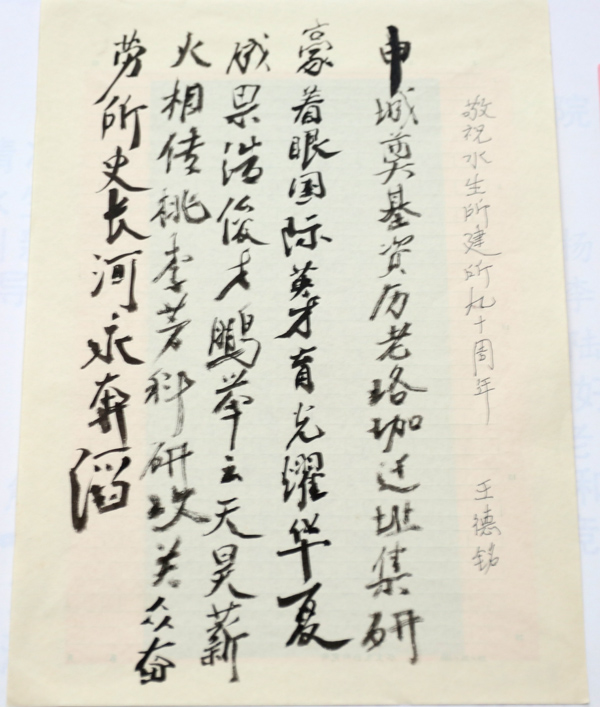 敬祝水生所建所九十周年 王德铭
申城奠基资历老珞珈迁址集研
豪着眼国际英才育光耀华夏
成果浩俊才鹏举云天昊薪
火相传桃李芳科研攻关众奋
劳所史长河永奔滔